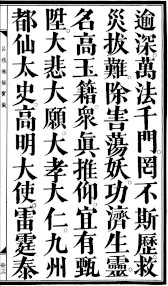 逾深萬法千門罔不斯歷救
災拔難除害蕩妖功濟生靈
名高玉籍衆眞推仰宜有甄
陞大悲大願大孝大仁九州
都仙太史高明大使雷霆泰